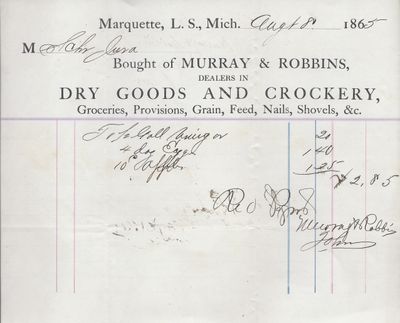 Marquette, L. S., Mich. Augt 8th 1865
M Schr Jura
Bought of MURRAY & ROBBINS,
DEALERS IN
DRY GOODS AND CROCKERY,
Groceries, Provisions, Grain, Feed, Nails, Shovels, &c.
To Gall Vinegar 20
4 doz Eggs 1 40
10 lb Apples 1 25
2,85
Rec'd Paymt
Murray & Robbins
John